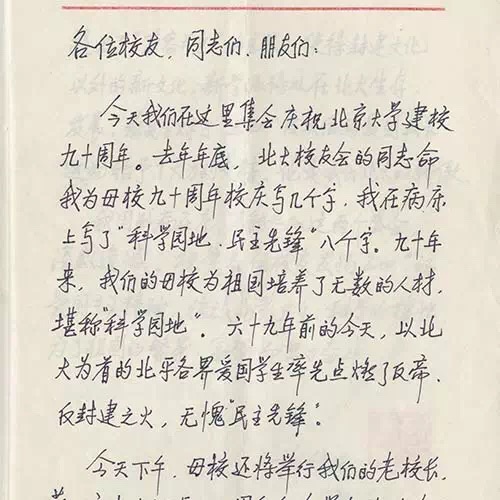 各位校友，同志们、朋友们：
今天我们在这里集会庆祝北京大学建校
九十周年。去年年底，北大校友会的同志命
我为母校九十周年校庆写几个字，我在病床
上写了"科学园地、民主先锋"八个字。九十年
来，我们的母校为祖国培养了无数的人材，
堪称"科学园地"。六十九年前的今天，以北
大为首的北平各界爱国学生率先点燃了反帝、
反封建之火，无愧"民主先锋"。
今天下午，母校还将举行我们的老校长，